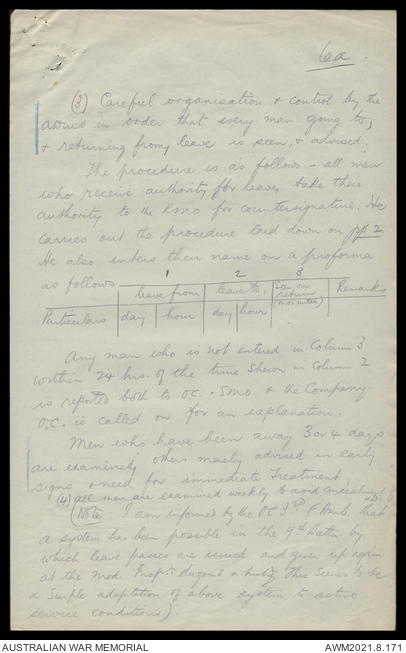 6a.
(3) Careful organisation & control by the
ADMS in order that every man going to,
& returning from, leave is seen, & advised.
The procedure is as follows - all men
who receive authority for leave, take their
authority to the RMO for countersignature. He
carries out the procedure laid down on pp 2
He also enters their name on a proforma
as follows
1 2 3
leave from leave to. Seen on return Remarks
Particulars day hour day hour
Any man who is not entered in Column 3
within 24 hrs. of the time shewn in Column 2
is reported both to O.C. & SMO. & the Company
O.C. is called on for an explanation.
Men who have been away 3 or 4 days
are examined, others merely advised in early
signs & need for immediate treatment.
(4) all men are examined weekly to avoid concealment
(Note: I am informed by the OC 3rd F Amb. that
a system has been possible in the 9th Battn. by
which leave passes are issued and given up again
at the Med. Insp. dugout or hut. This seems to be
a simple adaptation of above system to active
service conditions)
AUSTRALIAN WAR MEMORIAL
AWM2021.8.171